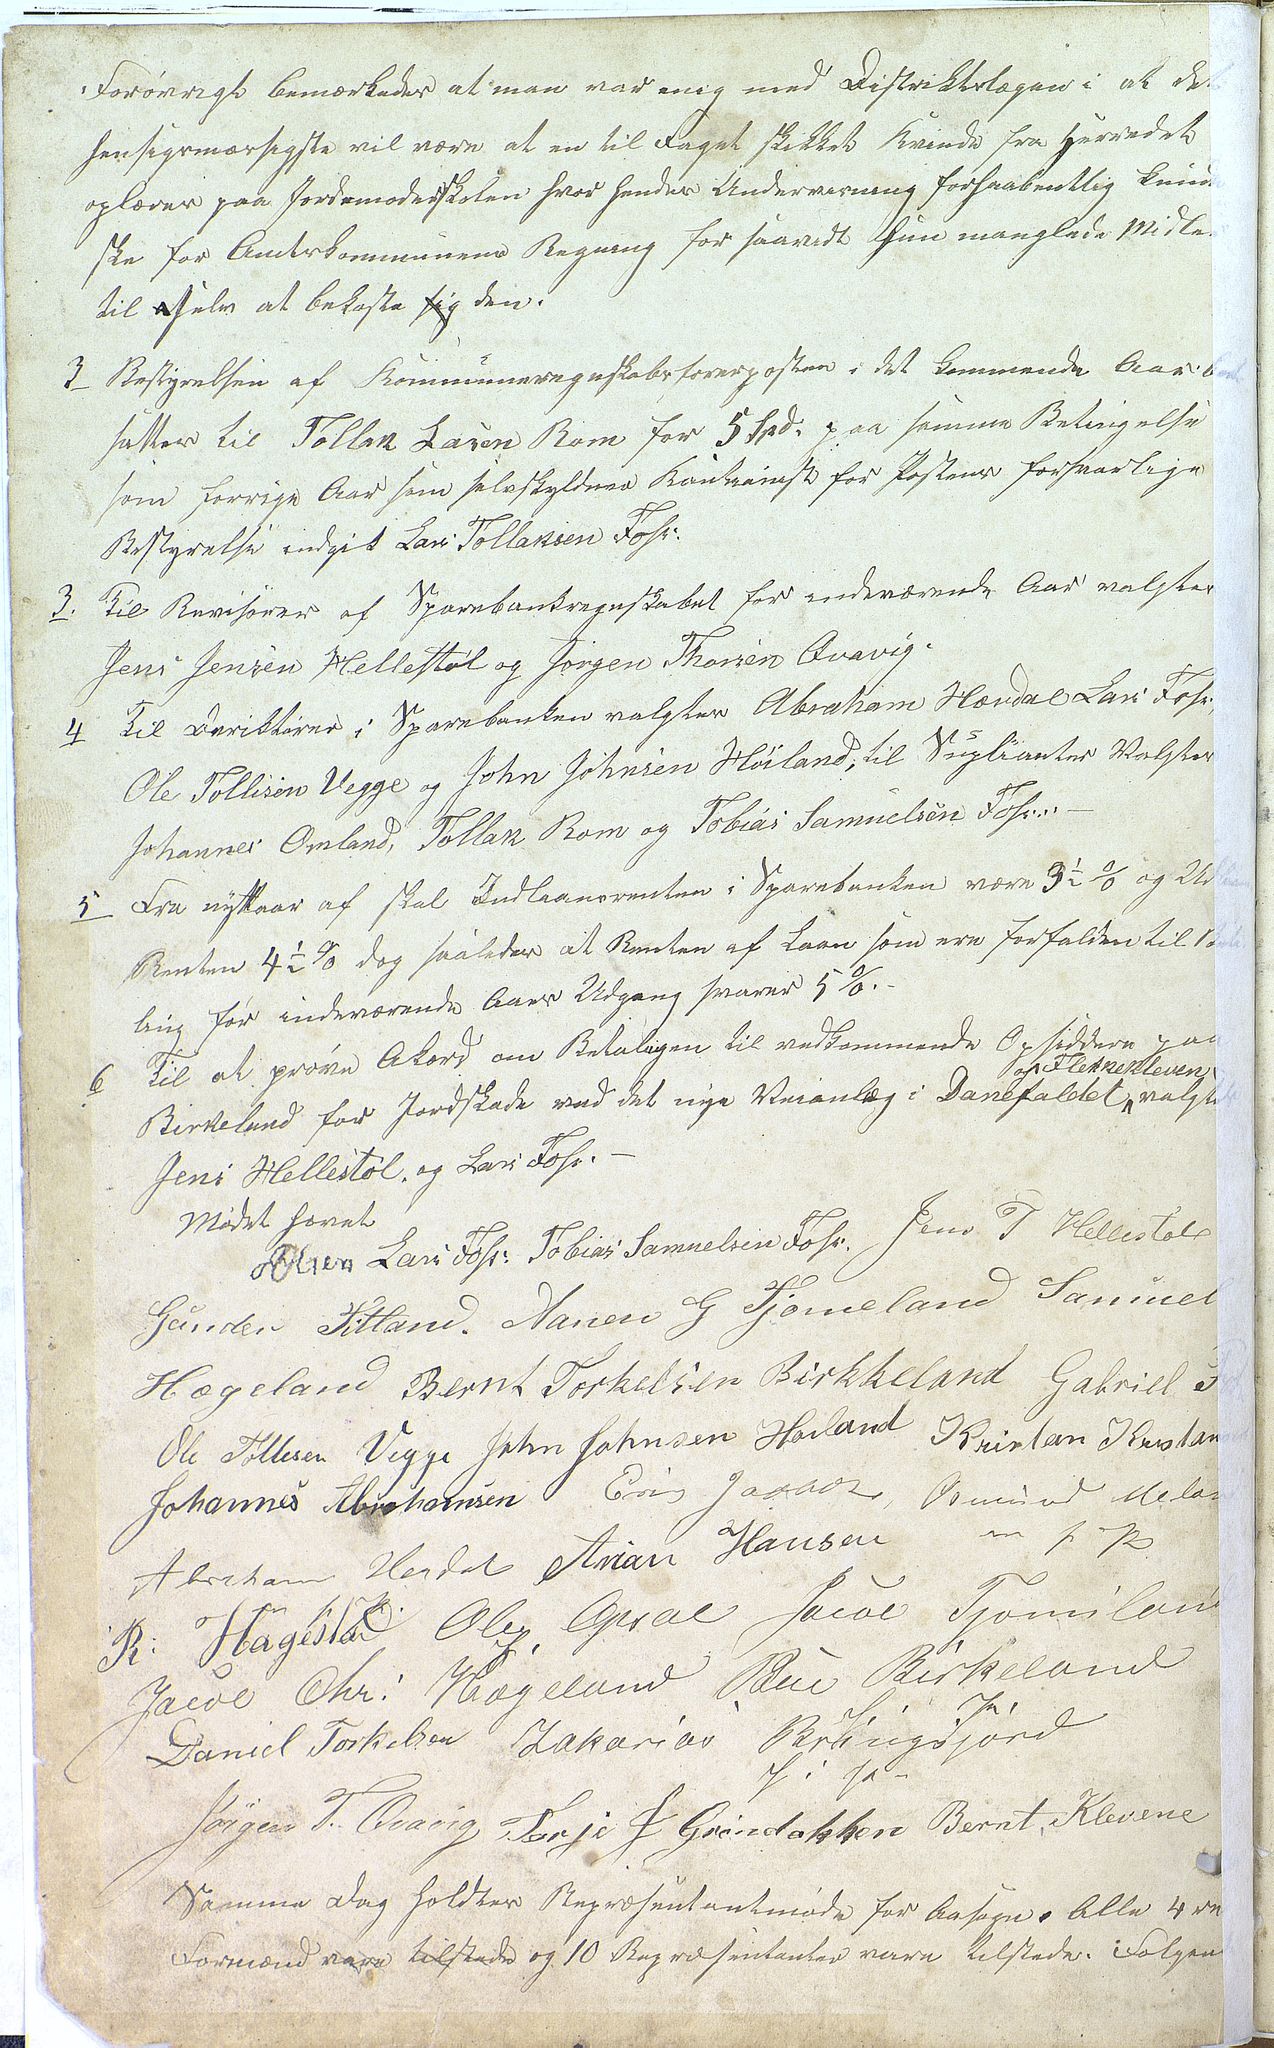 Forøvrigt bemærkedes at man var enig med Distriktslægen i at det
hensigsmæssigste vil være at en til Faget skikket Kvinde fra Herredet
oplæres paa Jordemoderskolen hvor hendes Underviisning forhaabentlig kunde
ske for Amtskommunens Regning for saavidt hun manglede Midle
til selv at bekoste sig den.
3 Bestyrelsen af Kommuneregnskabsførerposten i det kommende Aar
sattes til Tollak Larsen Rom for 5 Spd. paa samme Betingelse
som forrige Aar som selvskyldner Kautionist for Postens forsvarlige
Bestyrelse indgik Lars Tollaksen Fosse.
3. Til Revisorer af Sparebankregnskabet for indeværende Aar valgtes
Jens Jensen Hellestøl og Jørgen Thorsen Qvavig.
4 Til Derektører i Sparebanken valgtes Abraham Hændal Lars Foss.
Ole Tollisen Vegge og John Johnsen Høiland, til Suplianter Valgtes
Johannes Omland, Tollak Rom og Tobias Samuelsen Foss. —
5 Fra nyttaar af skal Indlaansrenten i Sparebanken være 3½ % og
Renten 4½ % dog saaledes at Renten af Laan som ere forfalden til
ling før indeværende Aars Udgang svarer 5 %. –
6 Til at prøve Akord om Betalingen til vedkommende Opsiddere paa
og Flekkekleven
Birkeland for Jordskade ved det nye Veianlæg i Danefaldet, valgtes
Jens Hellestøl. og Lars Foss. —
Mødet hævet
Lars Foss. Tobias Samuelsen Foss. Jens T Hellestøl
Gunder Fitland. Nanen G Tjomeland Samuel
Hægeland Bernt Torkelsen Birkkeland Gabriel
Ole Tollisen Vegge John Johnsen Høiland Kristan Kristan
Johannes Abrahamsen Osmund
Abraham Hendal Arian Hansen m p P
m p P.
R: Hagestad Ole Opsal Jacob Tjomiland
Jacob Chr: Hægeland Bue Birkeland
Daniel Torkelsen Zakarias Røkingsjord
Jørgen T. Qvavig Tarje Grindakken Bernt. Klevene
Samme Dag holdtes Repræsentantmøde for Aasogn. Alle 4 re
Formænd vare tilstede og 10 Repræsentanter vare tilstede. Følgen